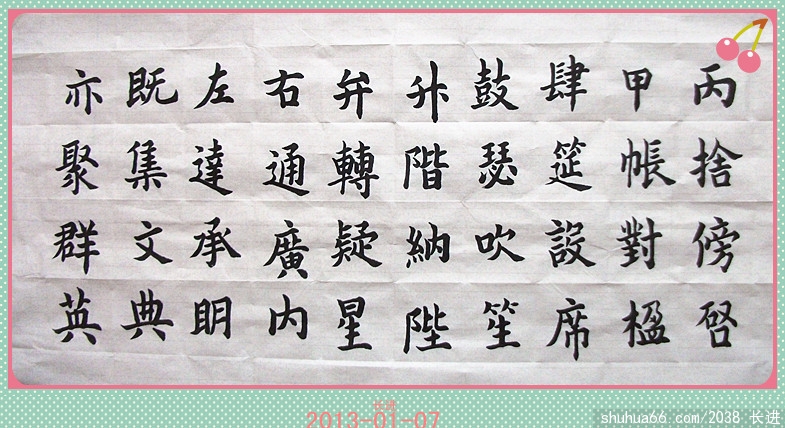 丙捨傍啓
甲帳對楹
肆筵設席
鼓瑟吹笙
升階納陛
弁轉疑星
右通廣内
左達承明
既集文典
亦聚群英
长进
2013-01-07
shuhua66.com/2038 长进